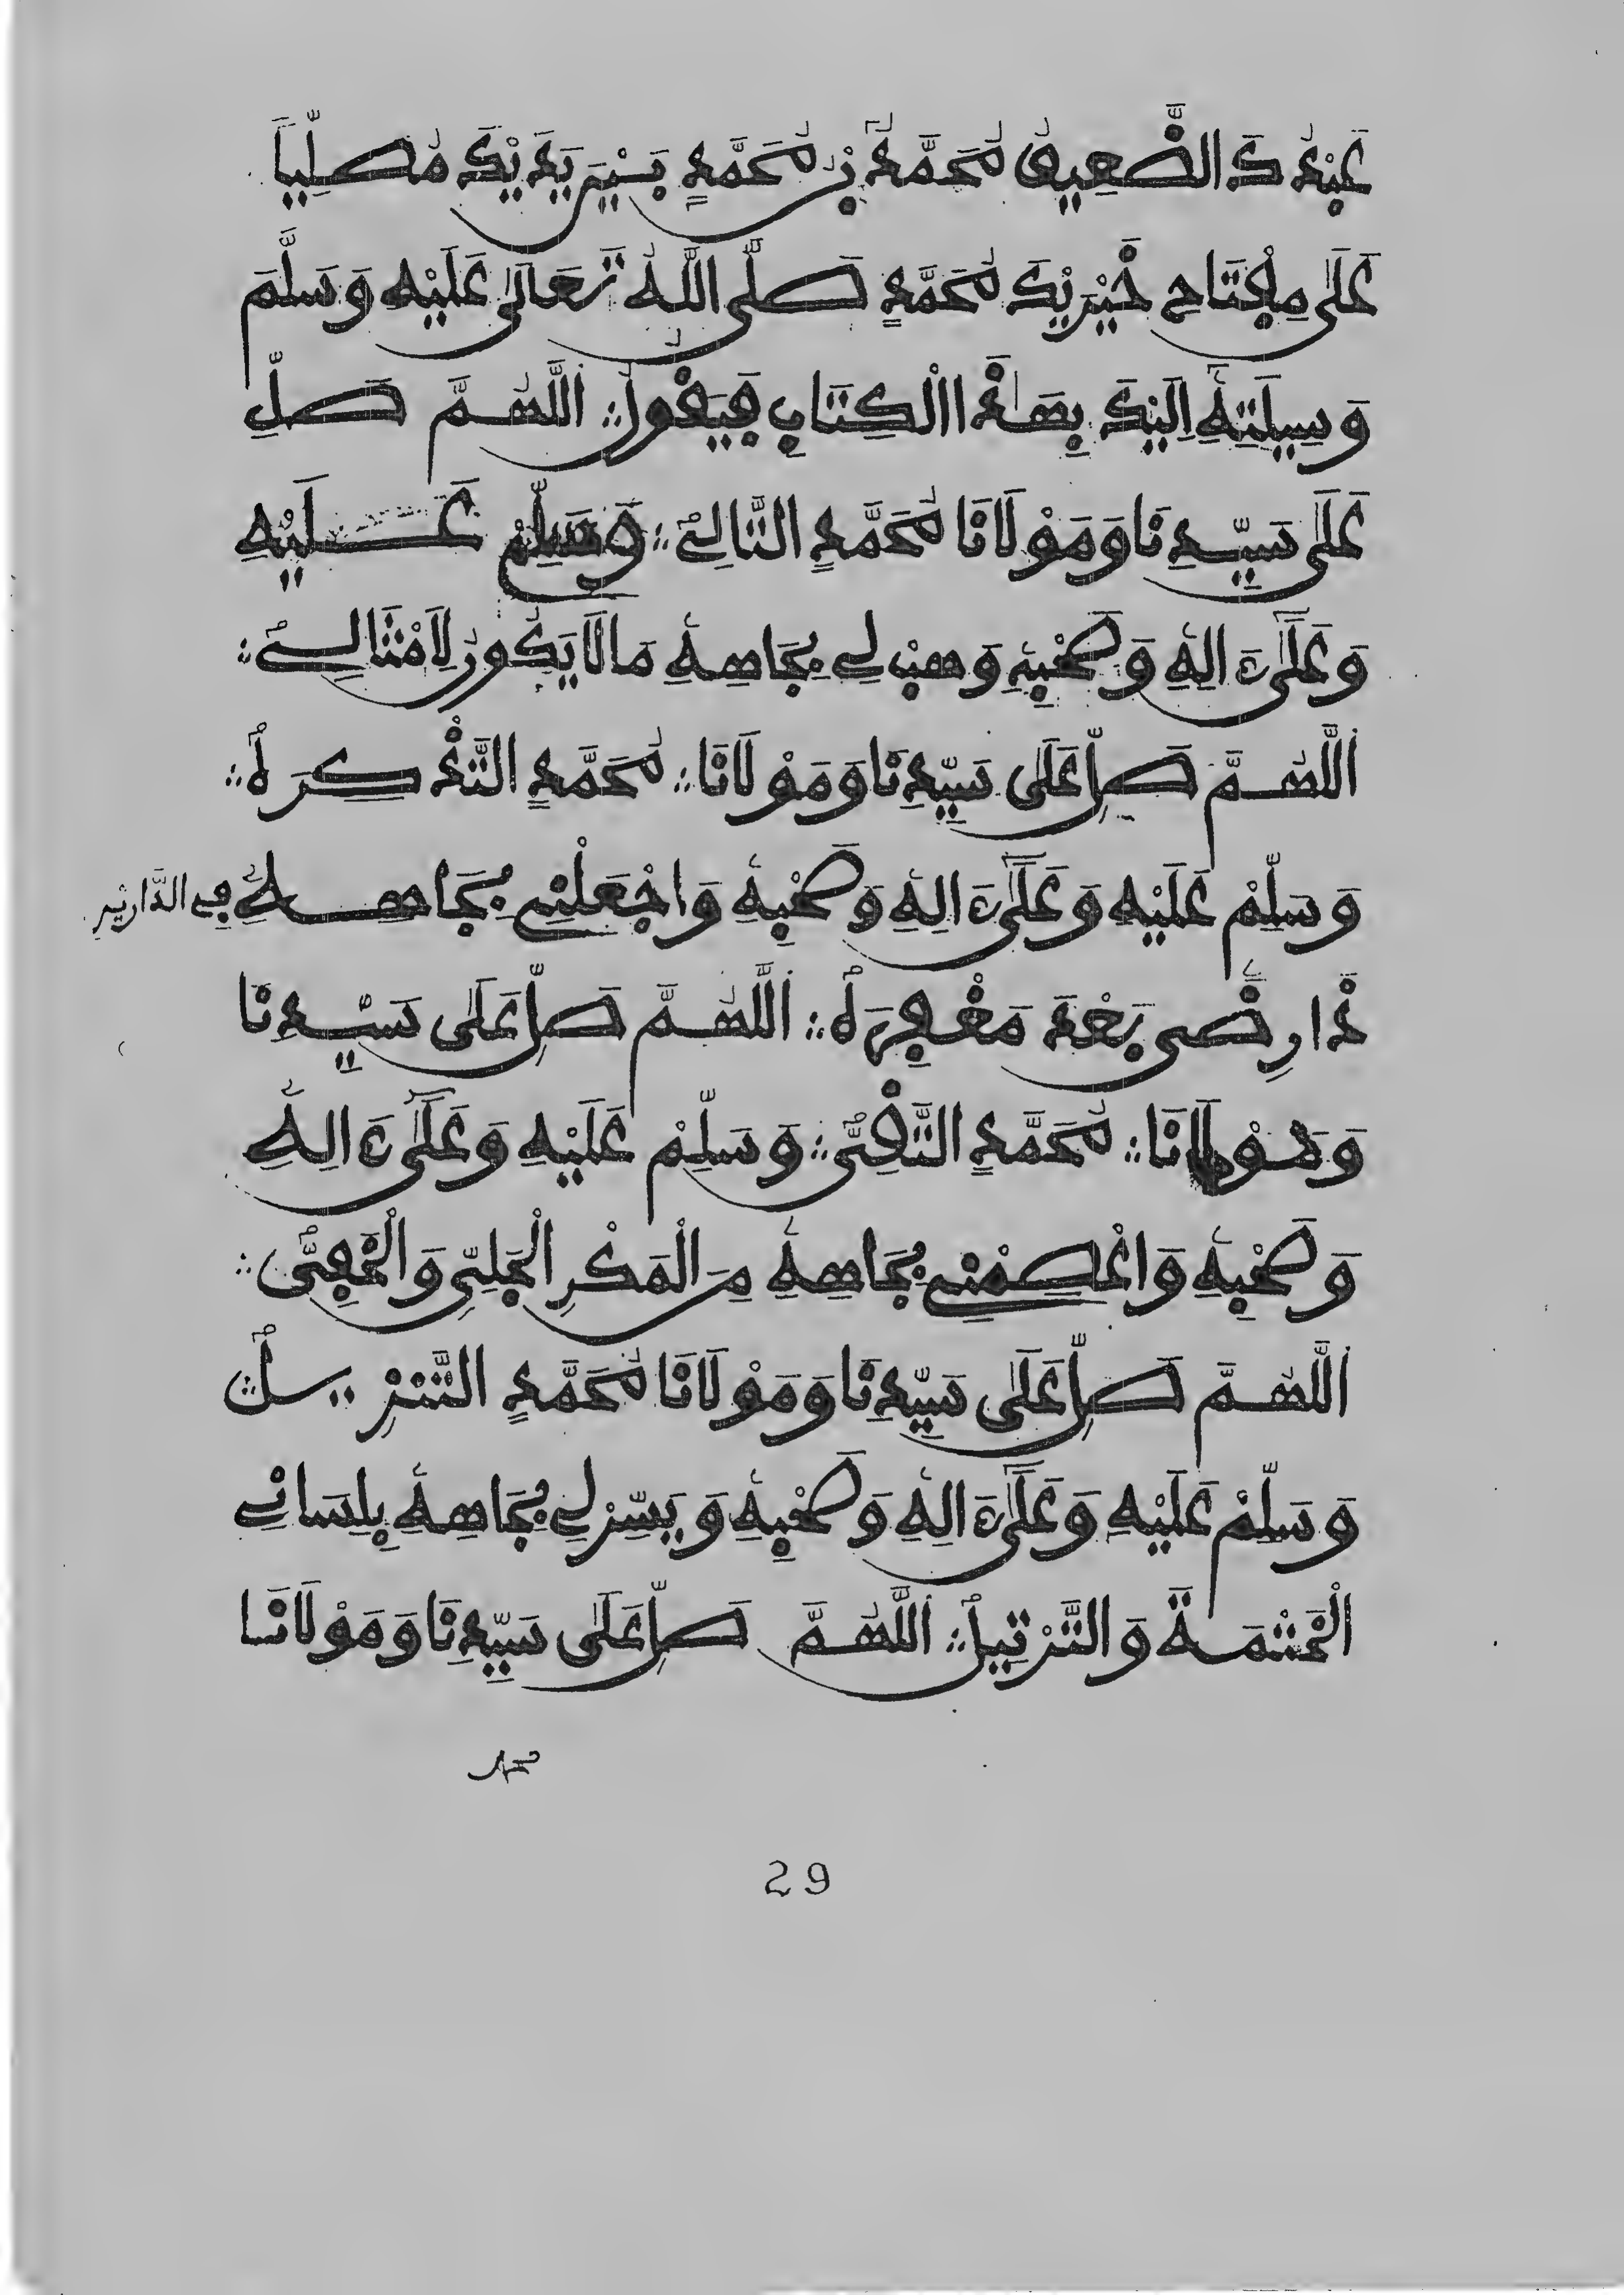 عَبْدُكَ الضَّعِيفُ مُحَمَّدُ بْنُ مُحَمَّدٍ بَيْنَ يَدَيْكَ مُصَلِّياً
عَلَى مِفْتَاحِ خَيْرِكَ مُحَمَّدٍ صَلَّى اللَّهُ تَعَالَى عَلَيْهِ وَسَلَّمَ
وَسِيلَتِهِ إِلَيْكَ بِهَذَا الْكِتَابِ فَيَقُولُ ؛ اللَّهُمَّ صَلِّ
عَلَى سَيِّدِنَا وَمَوْلَانَا مُحَمَّدٍ التَّالِي ؛ وَسَلِّمْ عَلَيْهِ
وَعَلَى ءَالِهِ وَصَحْبِهِ وَهَبْ لِي بِجَاهِهِ مَا لَا يَكُونُ لِأَمْثَالِي ؛
اللَّهُمَّ صَلِّ عَلَى سَيِّدِنَا وَمَوْلَانَا ؛ مُحَمَّدٍ التَّذْكِرَهْ ؛
وَسَلِّمْ عَلَيْهِ وَعَلَى ءَالِهِ وَصَحْبِهِ وَاجْعَلْنِي بِجَاهِهِ فِي الدَّارَيْنِ
ذَا رِضًى بَعْدَ مَغْفِرَهْ ؛ اللَّهُمَّ صَلِّ عَلَى سَيِّدِنَا
وَمَوْلَانَا ؛ مُحَمَّدٍ التَّقِيِّ ؛ وَسَلِّمْ عَلَيْهِ وَعَلَى ءَالِهِ
وَصَحْبِهِ وَاعْصِمْنِي بِجَاهِهِ مِنَ الْمَكْرِ الْجَلِيِّ وَالْخَفِيِّ ؛
اللَّهُمَّ صَلِّ عَلَى سَيِّدِنَا وَمَوْلَانَا مُحَمَّدٍ التَّنْزِيلْ ؛
وَسَلِّمْ عَلَيْهِ وَعَلَى ءَالِهِ وَصَحْبِهِ وَيَسِّرْ لِي بِجَاهِهِ بِلِسَانِي
الْخَتْمَةَ وَالتَّرْتِيلْ ؛ اللَّهُمَّ صَلِّ عَلَى سَيِّدِنَا وَمَوْلَانَا
محمد
29